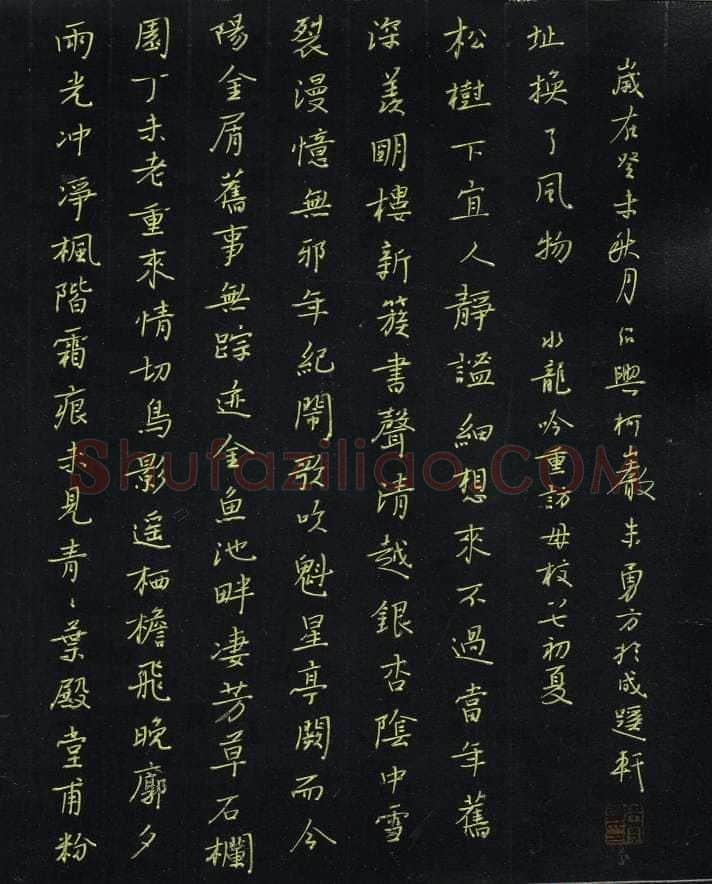 雨光冲淨楓階霜痕未見青々葉殿堂甫粉
園丁未老重來情切鳥影遥栖檐飛晚廓夕
陽金屑舊事無踪迹金魚池畔淒芳草石欄
裂漫憶無邪年紀鬧歌吹魁星亭闕而今
深羨明樓新簇書聲清越銀杏陰中雪
松樹下宜人靜謐細想來不過當年舊
址換了風物 水龍吟重訪母校初夏
歲在癸未秋月紹興柯巖朱勇方於成蹊軒
Shufaziliao.COM